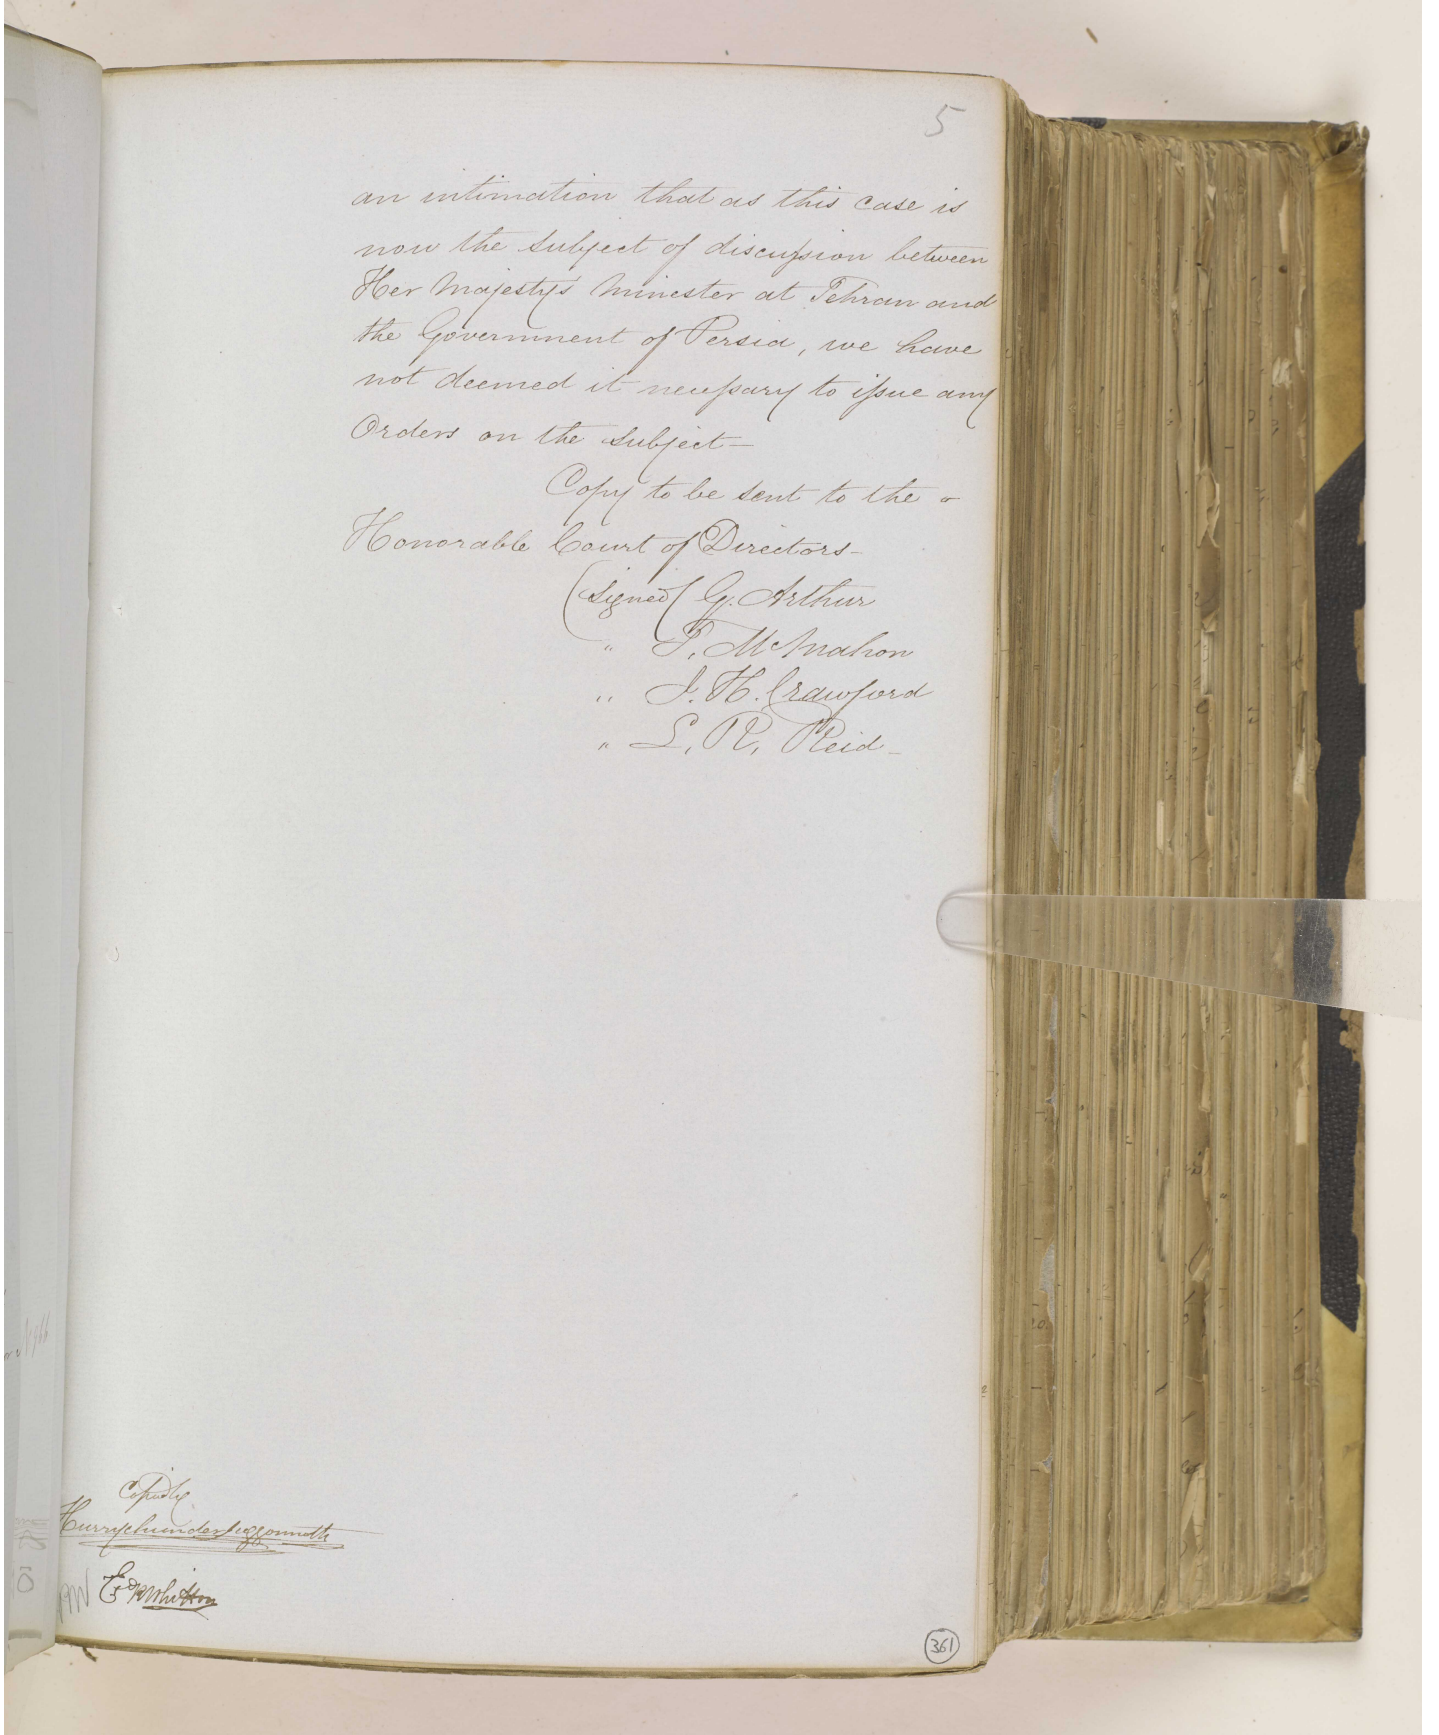 5
an intimation that as this case is
now the subject of discussion between
Her Majesty's Minister at Tehran and
the Government of Persia, we have
not deemed it necessary to issue any
Orders on the subject—
Copy to be sent to the
Honorable Court of Directors—
(Signed) G. Arthur
" T. McMahon
" J. H. Crawford
" L. R. Reid—
Copied by
Hurrychunder Juggonnath
Exd Whitton
361